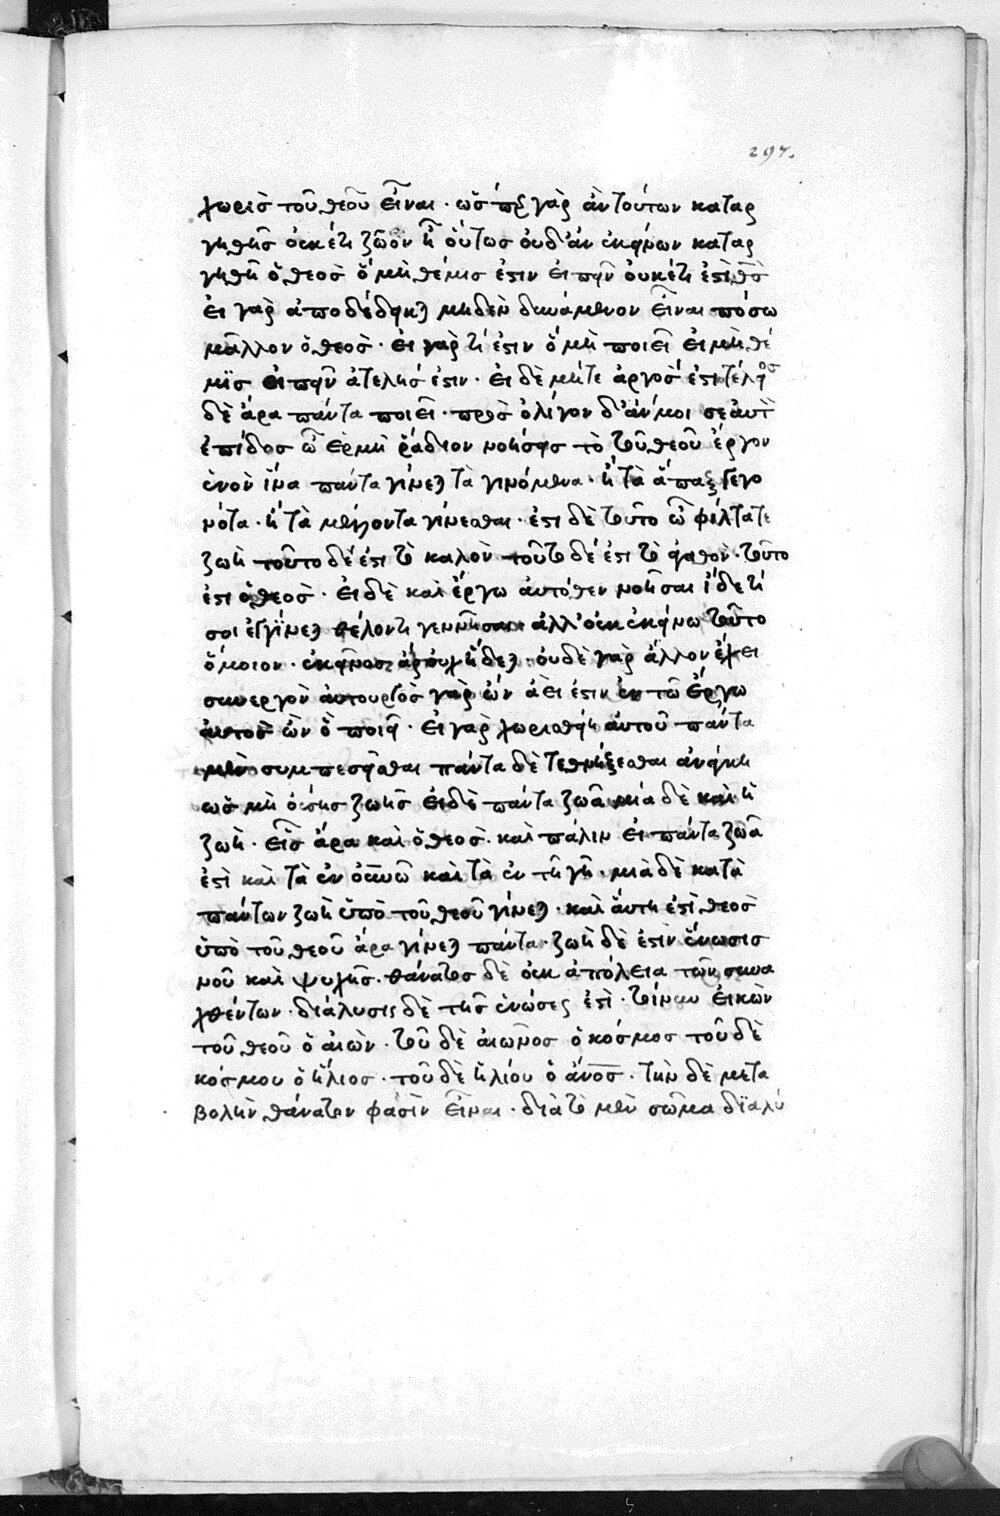 297.
χωρὶς τοῦ θεοῦ εἶναι · ὥσπερ γὰρ ἂν τούτων καταρ
γηθῇς οὐκέτι ζῶον ἢ οὕτως οὐδ' ἂν ἐκείνων καταρ
γηθῇ ὁ θεὸς ὃ μὴ θέμις ἐστιν εἰπεῖν οὐκέτι ἐστὶ θεὸς
εἰ γὰρ ἀποδέδεικται μηδὲν δυνάμενον εἶναι πόσω
μᾶλλον ὁ θεὸς · εἰ γάρ τί ἐστιν ὃ μὴ ποιεῖ εἰ μὴ θέ
μις εἰπεῖν ἀτελής ἐστιν · εἰ δὲ μήτε ἀργός ἐστι τέλειος
δὲ ἄρα πάντα ποιεῖ · πρὸς ὀλίγον δ' ἄν μοι σεαυτὸν
ἐπίδος ὦ ἑρμῆ ῥάδιον νοήσεις τὸ τοῦ θεοῦ ἔργον
ἐνὸν ἵνα πάντα γίνεται τὰ γινόμενα · ἢ τὰ ἅπαξ γεγο
νότα · ἢ τὰ μέλλοντα γίνεσθαι · ἔστι δὲ τοῦτο ὦ φίλτατε
ζωὴ τοῦτο δέ ἐστι τὸ καλὸν τοῦτο δέ ἐστι τὸ ἀγαθὸν · τοῦτο
ἐστι ὁ θεὸς · εἰ δὲ καὶ ἔργω αὐτόθεν νοῆσαι ἴδε τί
σοι ἐγγίνεται θέλοντι γεννῆσαι ἀλλ' οὐκ ἐκείνω τοῦτο
ὅμοιον · ἐκεῖνος ἄρ οὐχ ἥδεται · οὐδὲ γὰρ ἄλλον ἔχει
συνεργὸν αὐτουργὸς γὰρ ὢν ἀεί ἐστιν ἐν τῶ ἔργω
αὐτὸς ὢν ὃ ποιεῖ · εἰ γὰρ χωρισθείη αὐτοῦ πάντα
μὲν συμπεσεῖσθαι πάντα δὲ τεθνήξεσθαι ἀνάγκη
ὡς μὴ οὔσης ζωῆς εἰ δὲ πάντα ζῶα μία δὲ καὶ ἡ
ζωὴ · εἷς ἄρα καὶ ὁ θεὸς · καὶ πάλιν εἰ πάντα ζῶα
ἐστὶ καὶ τὰ ἐν οὐρανῶ καὶ τὰ ἐν τῇ γῇ · μία δὲ κατὰ
πάντων ζωὴ ὑπὸ τοῦ θεοῦ γίνεται · καὶ αὕτη ἐστὶ θεὸς
ὑπὸ τοῦ θεοῦ ἄρα γίνεται πάντα · ζωὴ δὲ ἐστὶν ἕνωσις
νοῦ καὶ ψυχῆς · θάνατος δὲ οὐκ ἀπόλεια τῶν συνα
χθέντων · διάλυσις δὲ τῆς ἑνώσεώς ἐστὶ · τοίνυν εἰκὼν
τοῦ θεοῦ ὁ αἰών · τοῦ δὲ αἰῶνος ὁ κόσμος τοῦ δὲ
κόσμου ὁ ἥλιος · τοῦ δὲ ἡλίου ὁ ἄνθρωπος · τὴν δὲ μετα
βολὴν θάνατον φασὶν εἶναι · διὰ τὸ μὲν σῶμα διαλύ